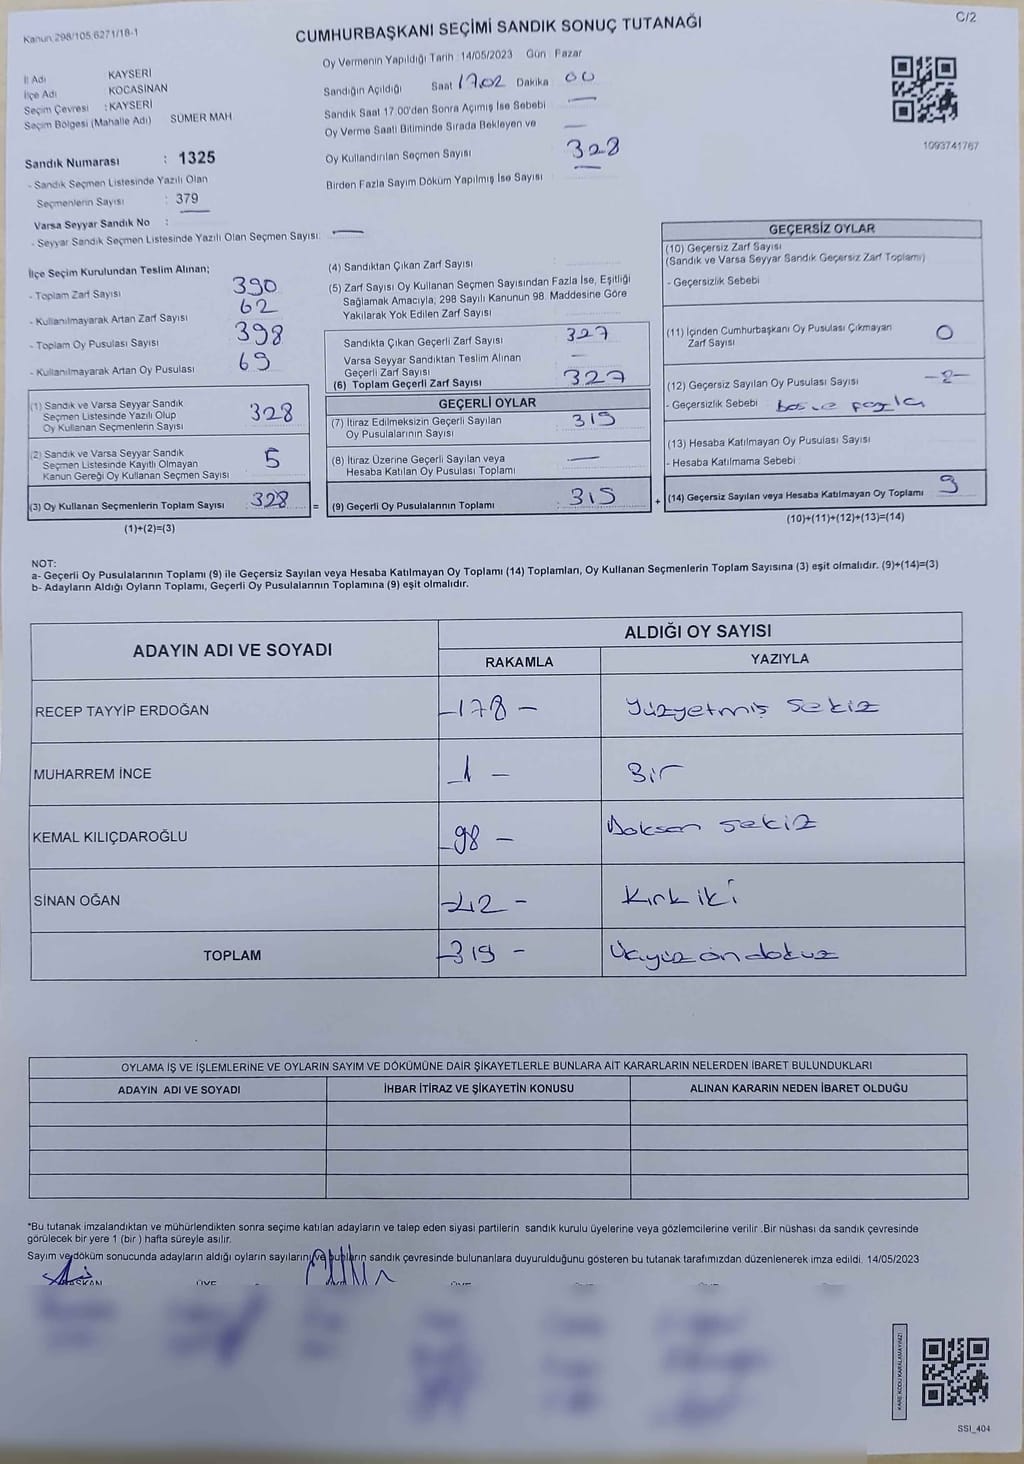 Kanun 298/105,6271/18-1
CUMHURBAŞKANI SEÇİMİ SANDIK SONUÇ TUTANAĞI
C/2
Oy Vermenin Yapıldığı Tarih : 14/05/2023 Gün Pazar
İl Adı KAYSERİ
İlçe Adı KOCASİNAN
Seçim Çevresi : KAYSERİ
Seçim Bölgesi (Mahalle Adı) SÜMER MAH
Sandığın Açıldığı Saat 1702 Dakika 00
Sandık Saat 17:00'den Sonra Açımış İse Sebebi —
Oy Verme Saati Bitiminde Sırada Bekleyen ve —
Oy Kullandırılan Seçmen Sayısı 328
Birden Fazla Sayım Döküm Yapılmış İse Sayısı —
1093741767
Sandık Numarası : 1325
- Sandık Seçmen Listesinde Yazılı Olan
Seçmenlerin Sayısı : 379
Varsa Seyyar Sandık No :
- Seyyar Sandık Seçmen Listesinde Yazılı Olan Seçmen Sayısı: —
İlçe Seçim Kurulundan Teslim Alınan;
- Toplam Zarf Sayısı 390
- Kullanılmayarak Artan Zarf Sayısı 62
- Toplam Oy Pusulası Sayısı 398
- Kullanılmayarak Artan Oy Pusulası 69
(1) Sandık ve Varsa Seyyar Sandık
Seçmen Listesinde Yazılı Olup
Oy Kullanan Seçmenlerin Sayısı 328
(2) Sandık ve Varsa Seyyar Sandık
Seçmen Listesinde Kayıtlı Olmayan
Kanun Gereği Oy Kullanan Seçmen Sayısı 5
(3) Oy Kullanan Seçmenlerin Toplam Sayısı 328 =
(1)+(2)=(3)
(4) Sandıktan Çıkan Zarf Sayısı
(5) Zarf Sayısı Oy Kullanan Seçmen Sayısından Fazla İse, Eşitliği
Sağlamak Amacıyla, 298 Sayılı Kanunun 98. Maddesine Göre
Yakılarak Yok Edilen Zarf Sayısı
Sandıkta Çıkan Geçerli Zarf Sayısı 327
Varsa Seyyar Sandıktan Teslim Alınan
Geçerli Zarf Sayısı —
(6) Toplam Geçerli Zarf Sayısı 327
GEÇERLİ OYLAR
(7) İtiraz Edilmeksizin Geçerli Sayılan
Oy Pusulalarının Sayısı 319
(8) İtiraz Üzerine Geçerli Sayılan veya
Hesaba Katılan Oy Pusulası Toplamı —
(9) Geçerli Oy Pusulalarının Toplamı : 319 +
GEÇERSİZ OYLAR
(10) Geçersiz Zarf Sayısı
(Sandık ve Varsa Seyyar Sandık Geçersiz Zarf Toplamı)
- Geçersizlik Sebebi
(11) İçinden Cumhurbaşkanı Oy Pusulası Çıkmayan
Zarf Sayısı 0
(12) Geçersiz Sayılan Oy Pusulası Sayısı
- Geçersizlik Sebebi
(13) Hesaba Katılmayan Oy Pusulası Sayısı
- Hesaba Katılmama Sebebi
(14) Geçersiz Sayılan veya Hesaba Katılmayan Oy Toplamı 9
(10)+(11)+(12)+(13)=(14)
NOT:
a- Geçerli Oy Pusulalarının Toplamı (9) ile Geçersiz Sayılan veya Hesaba Katılmayan Oy Toplamı (14) Toplamları, Oy Kullanan Seçmenlerin Toplam Sayısına (3) eşit olmalıdır. (9)+(14)=(3)
b- Adayların Aldığı Oyların Toplamı, Geçerli Oy Pusulalarının Toplamına (9) eşit olmalıdır.
ADAYIN ADI VE SOYADI ALDIĞI OY SAYISI
RAKAMLA YAZIYLA
RECEP TAYYİP ERDOĞAN -178- Yüzyetmiş Sekiz
MUHARREM İNCE -1- Bir
KEMAL KILIÇDAROĞLU -98- Doksan sekiz
SİNAN OĞAN -42- Kırk iki
TOPLAM -319- Üçyüz on dokuz
OYLAMA İŞ VE İŞLEMLERİNE VE OYLARIN SAYIM VE DÖKÜMÜNE DAİR ŞİKAYETLERLE BUNLARA AİT KARARLARIN NELERDEN İBARET BULUNDUKLARI
ADAYIN ADI VE SOYADI İHBAR İTİRAZ VE ŞİKAYETİN KONUSU ALINAN KARARIN NEDEN İBARET OLDUĞU
*Bu tutanak imzalandıktan ve mühürlendikten sonra seçime katılan adayların ve talep eden siyasi partilerin sandık kurulu üyelerine veya gözlemcilerine verilir .Bir nüshası da sandık çevresinde
görülecek bir yere 1 (bir ) hafta süreyle asılır.
Sayım ve döküm sonucunda adayların aldığı oyların sayılarını ve bunların sandık çevresinde bulunanlara duyurulduğunu gösteren bu tutanak tarafımızdan düzenlenerek imza edildi. 14/05/2023
BAŞKAN ÜYE
KARE KODU KARALAMAYINIZ!
SSI_404